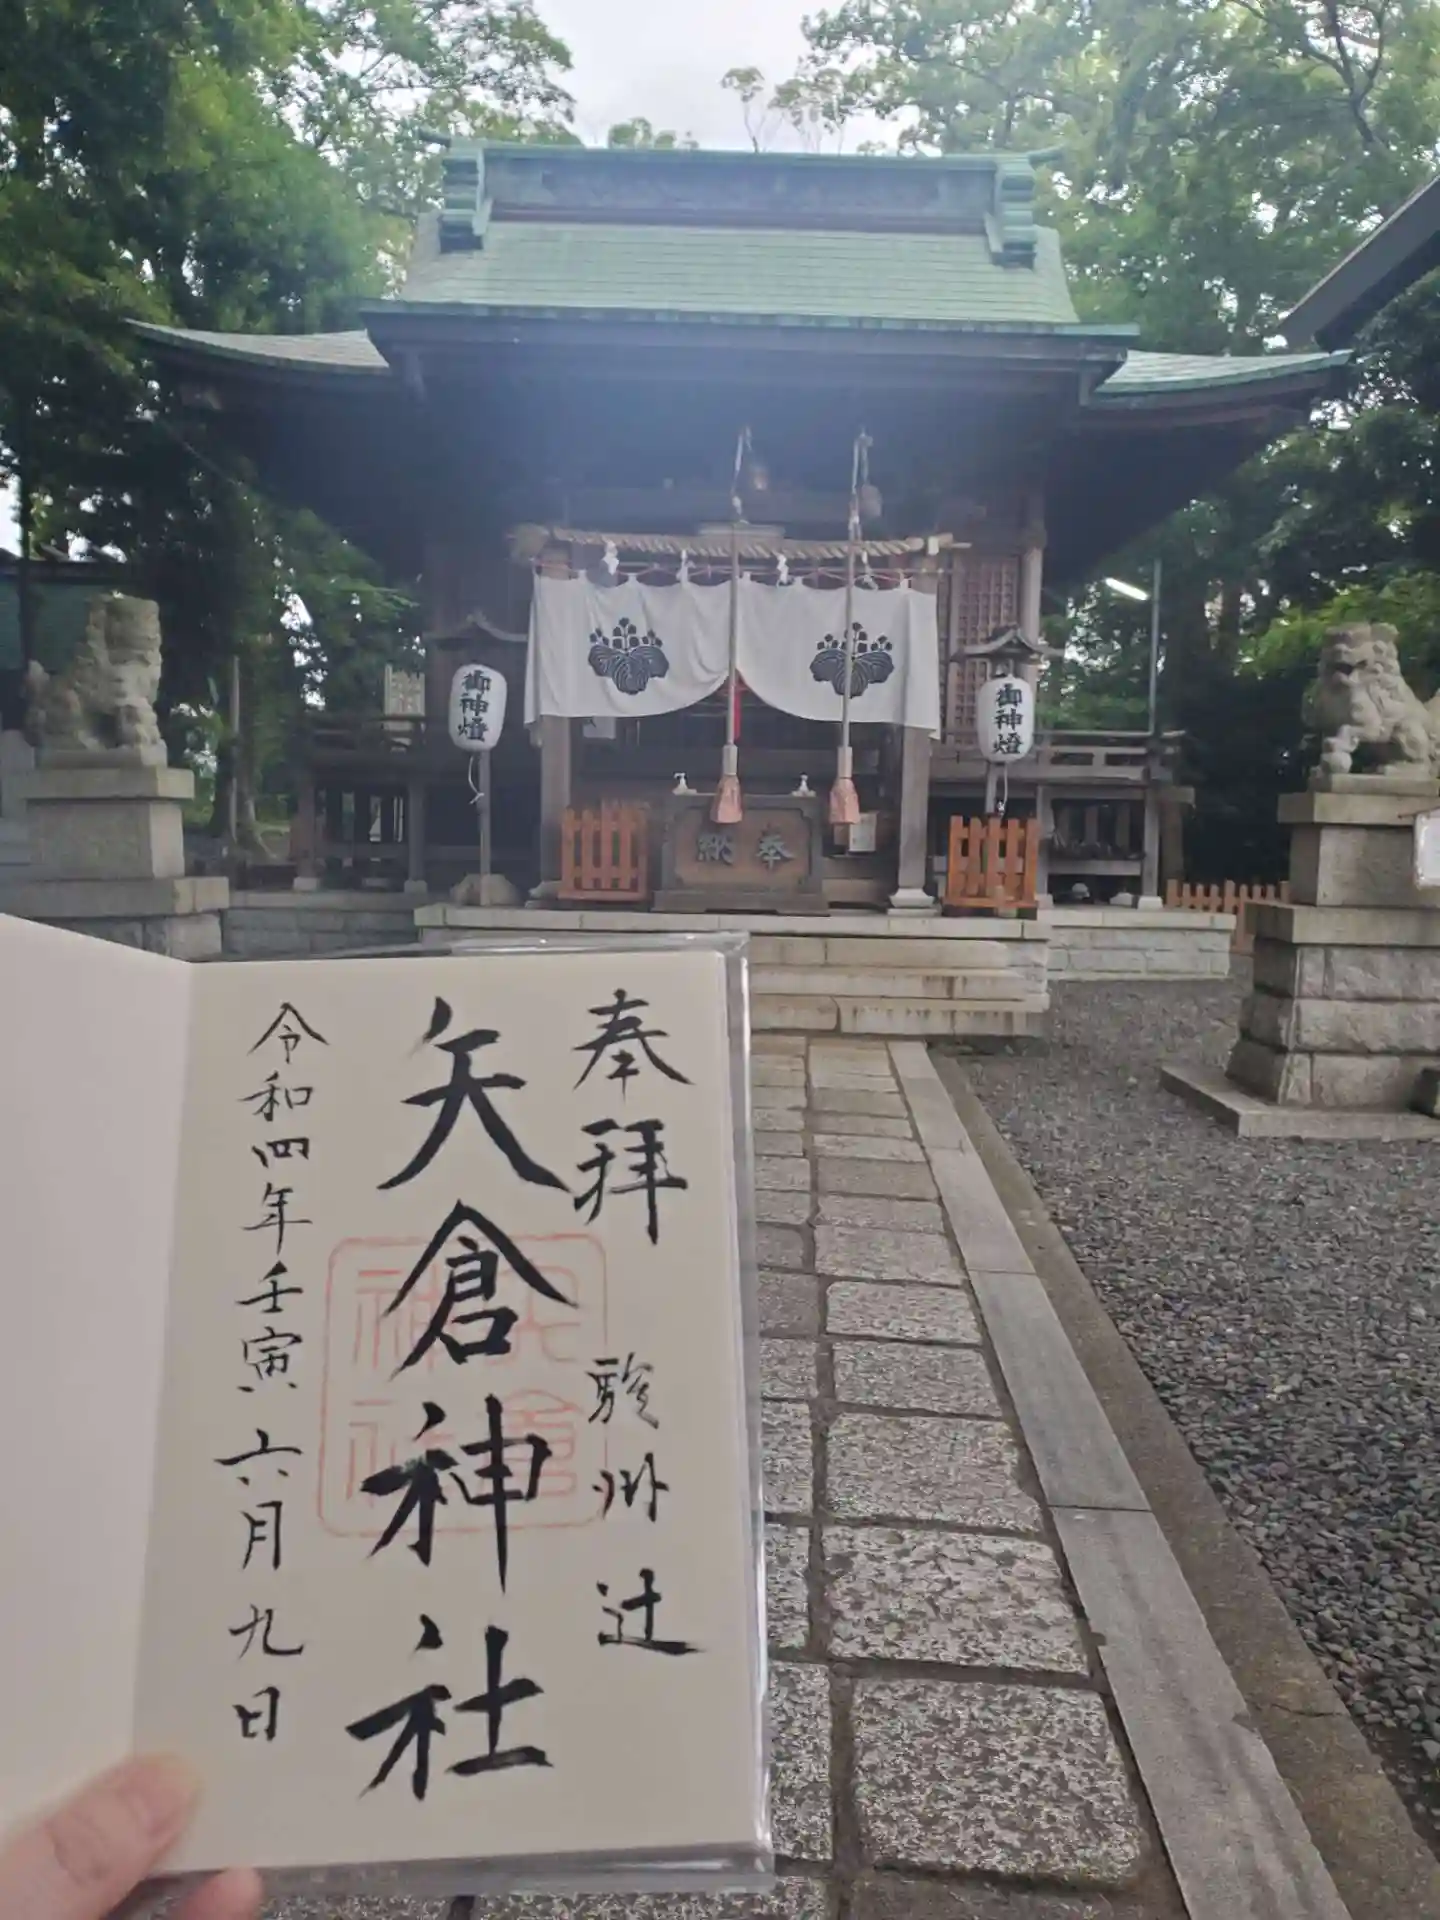 御神燈
御神燈
奉納
奉拝 駿州辻
矢倉神社
令和四年壬寅六月九日
矢倉
神社